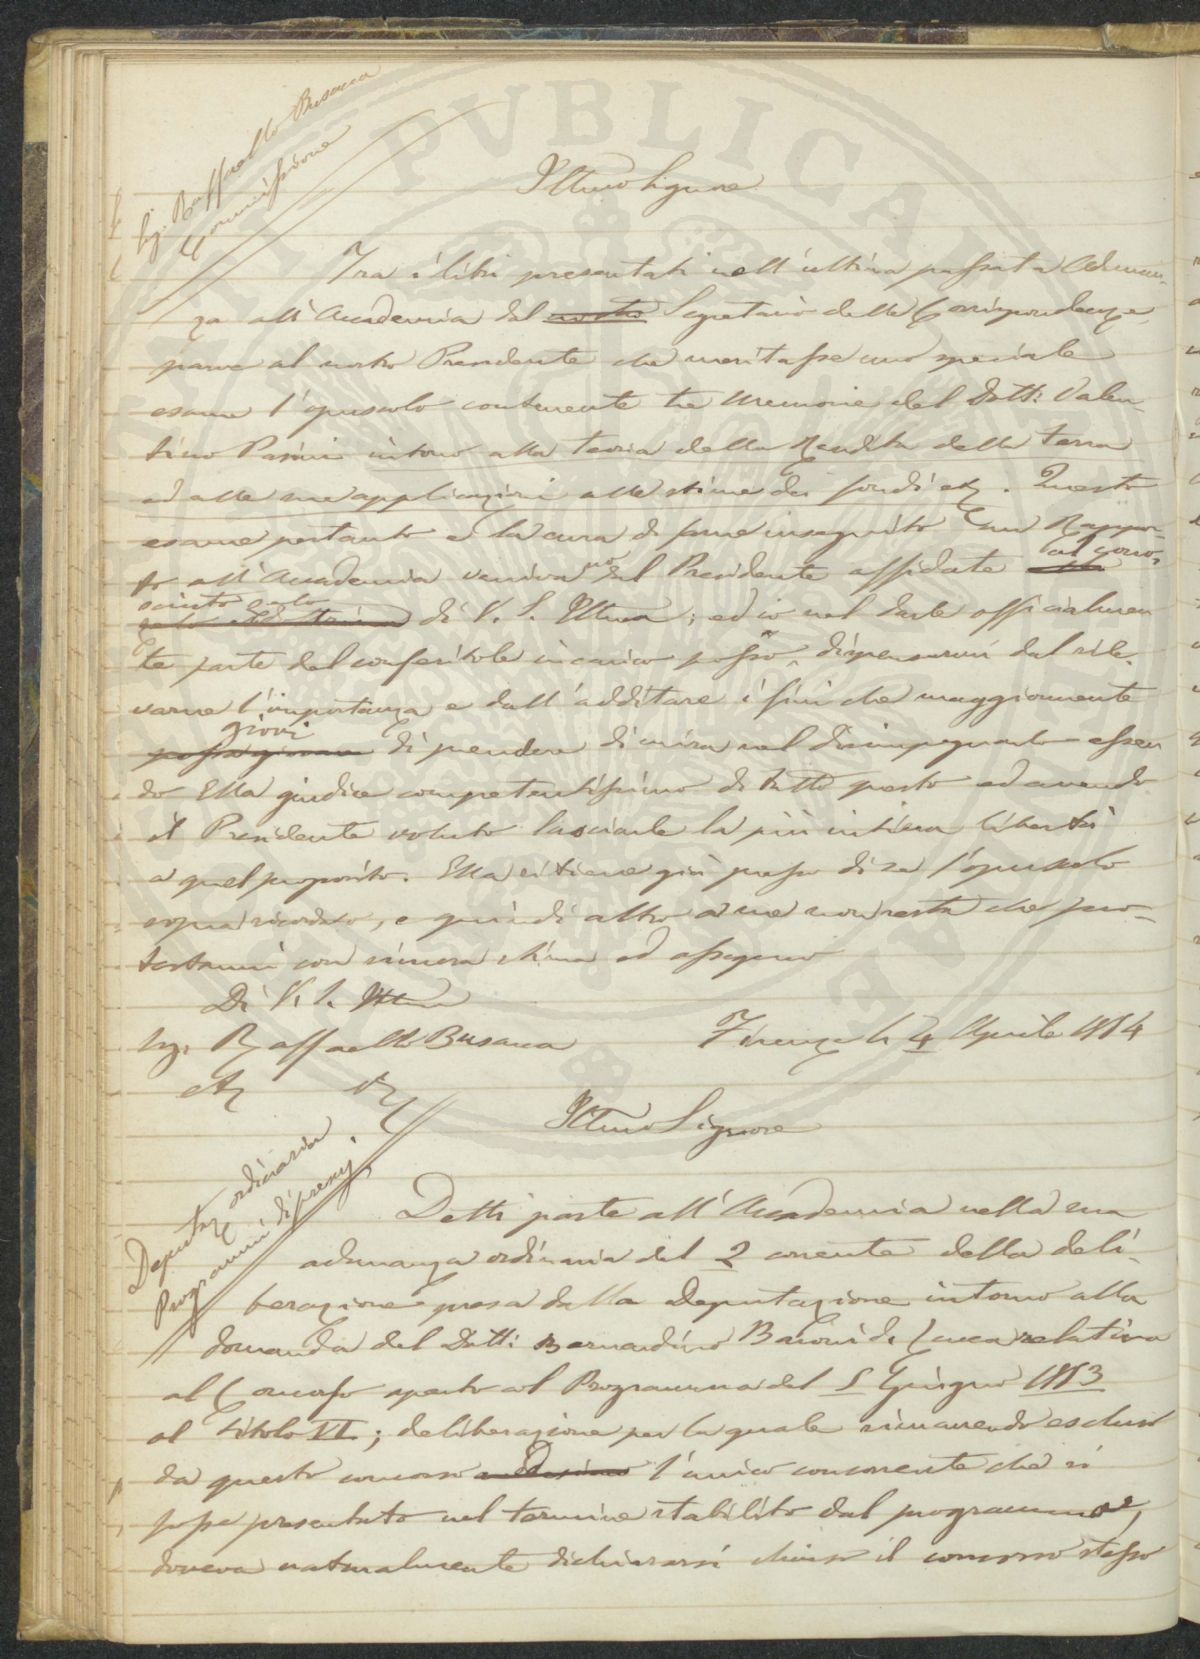 Sig. Raffaello Busacca
Commissione
Illmo Signore
Tra i libri presentati nell'ultima passata Adunan-
za all'Accademia dal nostro Segretario delle Corrispondenze,
parve al nostro Presidente che meritasse uno speciale
esame l'opuscolo contenente tre Memorie del Dott: Valen-
tino Pasini intorno alla teoria della Rendita della terra
ed alle sue applicazioni alle stime dei fondi etc. Questo
esame pertanto e la cura di farne in seguito un Rappor-
to all'Accademia veniva dal Presidente affidato al cono-
sciuto zelo di V. S. Illma; ed io nel darle officialmen
te parte del conferitole incarico posso dispensarmi dal rile-
varne l'importanza e dall'additare i fini che maggiormente
giovi di prendere di mira nel disimpegnarlo essen
do Ella giudice competentissimo di tutto questo ed avendo
il Presidente voluto lasciarle la più intiera libertà
a quel proposito. Ella ritiene già presso di se l'opuscolo
sopra ricordato, e quindi altro a me non resta che pro-
testarmi con sincera stima ed ossequio
Di V. S. Illma
Sig. Raffaello Busacca Firenze li 4 Aprile 1854
etc etc
Illmo Signore
Deputaz ordinaria
Programmi di premj
Detti parte all'Accademia nella sua
adunanza ordinaria del 2 corrente della deli-
berazione presa dalla Deputazione intorno alla
domanda del Dott: Bernardino Baroni di Lucca relativa
al Concorso aperto col Programma del 5 Giugno 1853
al titolo VI; deliberazione per la quale rimanendo escluso
da questo concorso medesimo l'unico concorrente che si
fosse presentato nel termine stabilito dal programma,
doveva naturalmente dichiararsi chiuso il concorso stesso
PVBLICAE